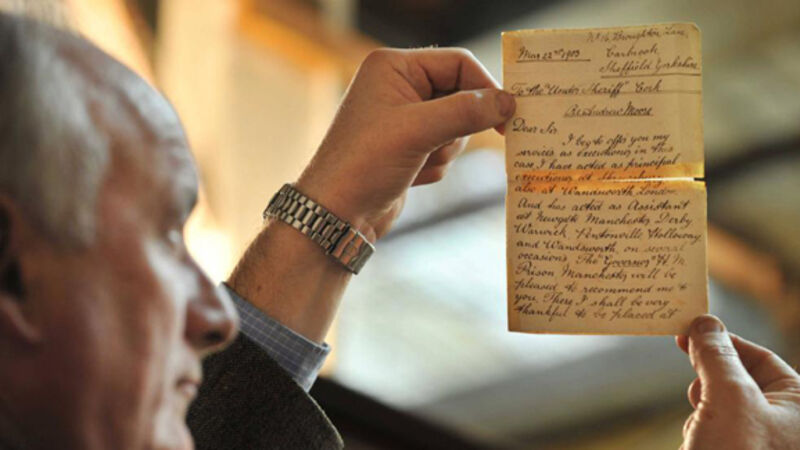 No 16 Broughton Lane,
Mar 22nd 1903 Carbrook
Sheffield Yorkshire
To the "Under Sheriff" Cork
Re Andrew Moore
Dear Sir,
I beg to offer you my
services as executioner in this
case, I have acted as principal
executioner at
also at Wandsworth London
And has acted as Assistant
at Newgate Manchester Derby
Warwick, Pentonville Holloway
and Wandsworth, on several
occasions, The "Governor" H. M.
Prison Manchester will be
pleased to recommend me to
you, There I shall be very
thankful to be placed at